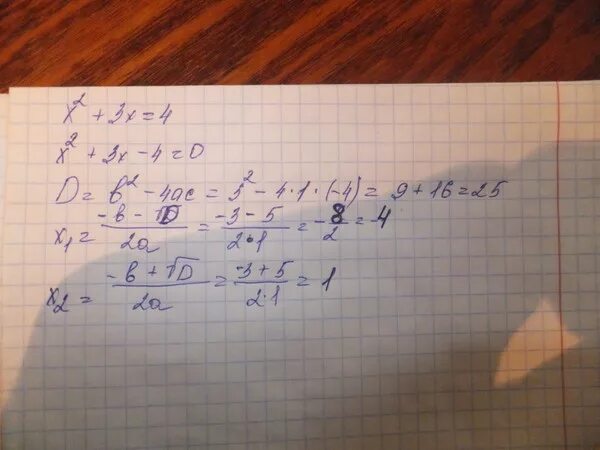 x² + 3x = 4
x² + 3x - 4 = 0
D = b² - 4ac = 3² - 4·1·(-4) = 9 + 16 = 25
x₁ = (-b - √D)/2a = (-3 - 5)/2·1 = -8/2 = -4
x₂ = (-b + √D)/2a = (-3 + 5)/2·1 = 1